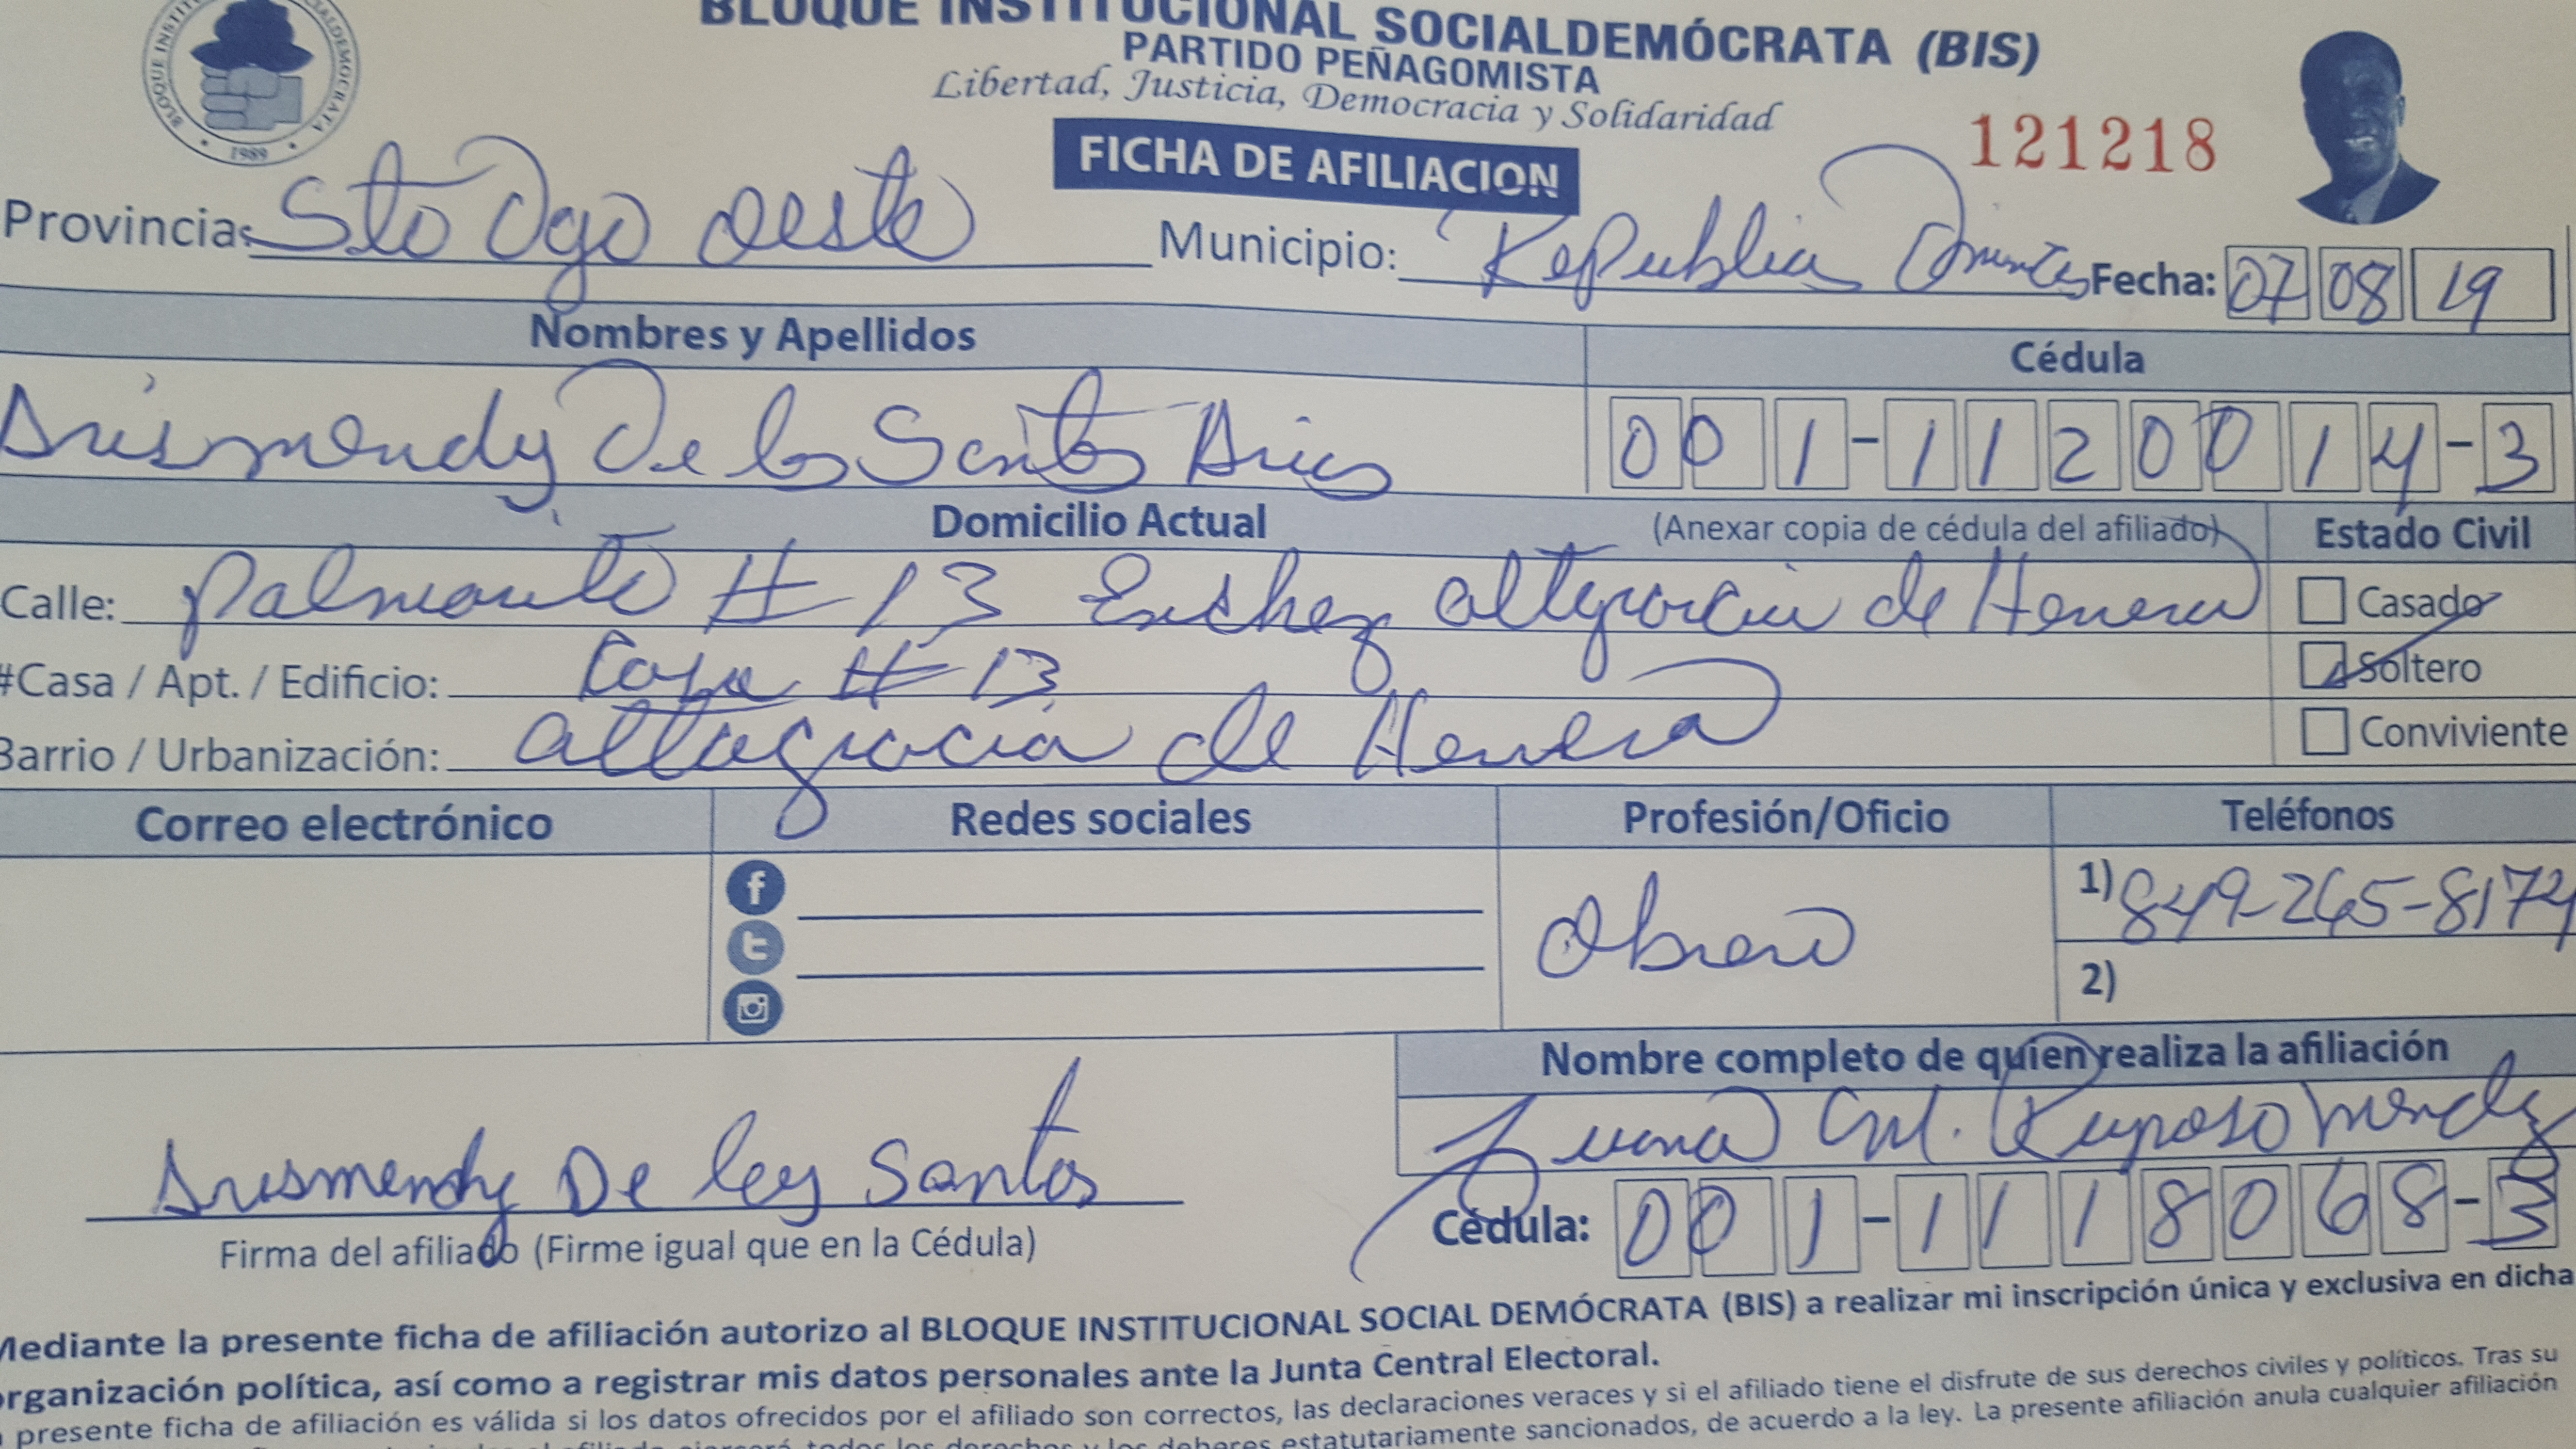 BLOQUE INSTITUCIONAL SOCIALDEMÓCRATA (BIS)
PARTIDO PEÑAGOMISTA
Libertad, Justicia, Democracia y Solidaridad
1989
FICHA DE AFILIACION
121218
Provincia: Sto Dgo oeste Municipio: Republica Fecha: 07 08 19
Nombres y Apellidos Cédula
Arismendy De los Santos Arias 001-1120014-3
Domicilio Actual (Anexar copia de cédula del afiliado) Estado Civil
Calle: palmarito # 13 altagracia de Herrera Casado
#Casa / Apt. / Edificio: Casa # 13 Soltero
Barrio / Urbanización: altagracia de Herrera Conviviente
Correo electrónico Redes sociales Profesión/Oficio Teléfonos
Obrero 1) 849-265-8174
2)
Nombre completo de quien realiza la afiliación
Juana Ml. Raposo Mendez
Arismendy De los Santos
Firma del afiliado (Firme igual que en la Cédula)
Cédula: 001-1118068-3
Mediante la presente ficha de afiliación autorizo al BLOQUE INSTITUCIONAL SOCIAL DEMÓCRATA (BIS) a realizar mi inscripción única y exclusiva en dicha
organización política, así como a registrar mis datos personales ante la Junta Central Electoral.
presente ficha de afiliación es válida si los datos ofrecidos por el afiliado son correctos, las declaraciones veraces y si el afiliado tiene el disfrute de sus derechos civiles y políticos. Tras su
todos los derechos y los deberes estatutariamente sancionados, de acuerdo a la ley. La presente afiliación anula cualquier afiliación